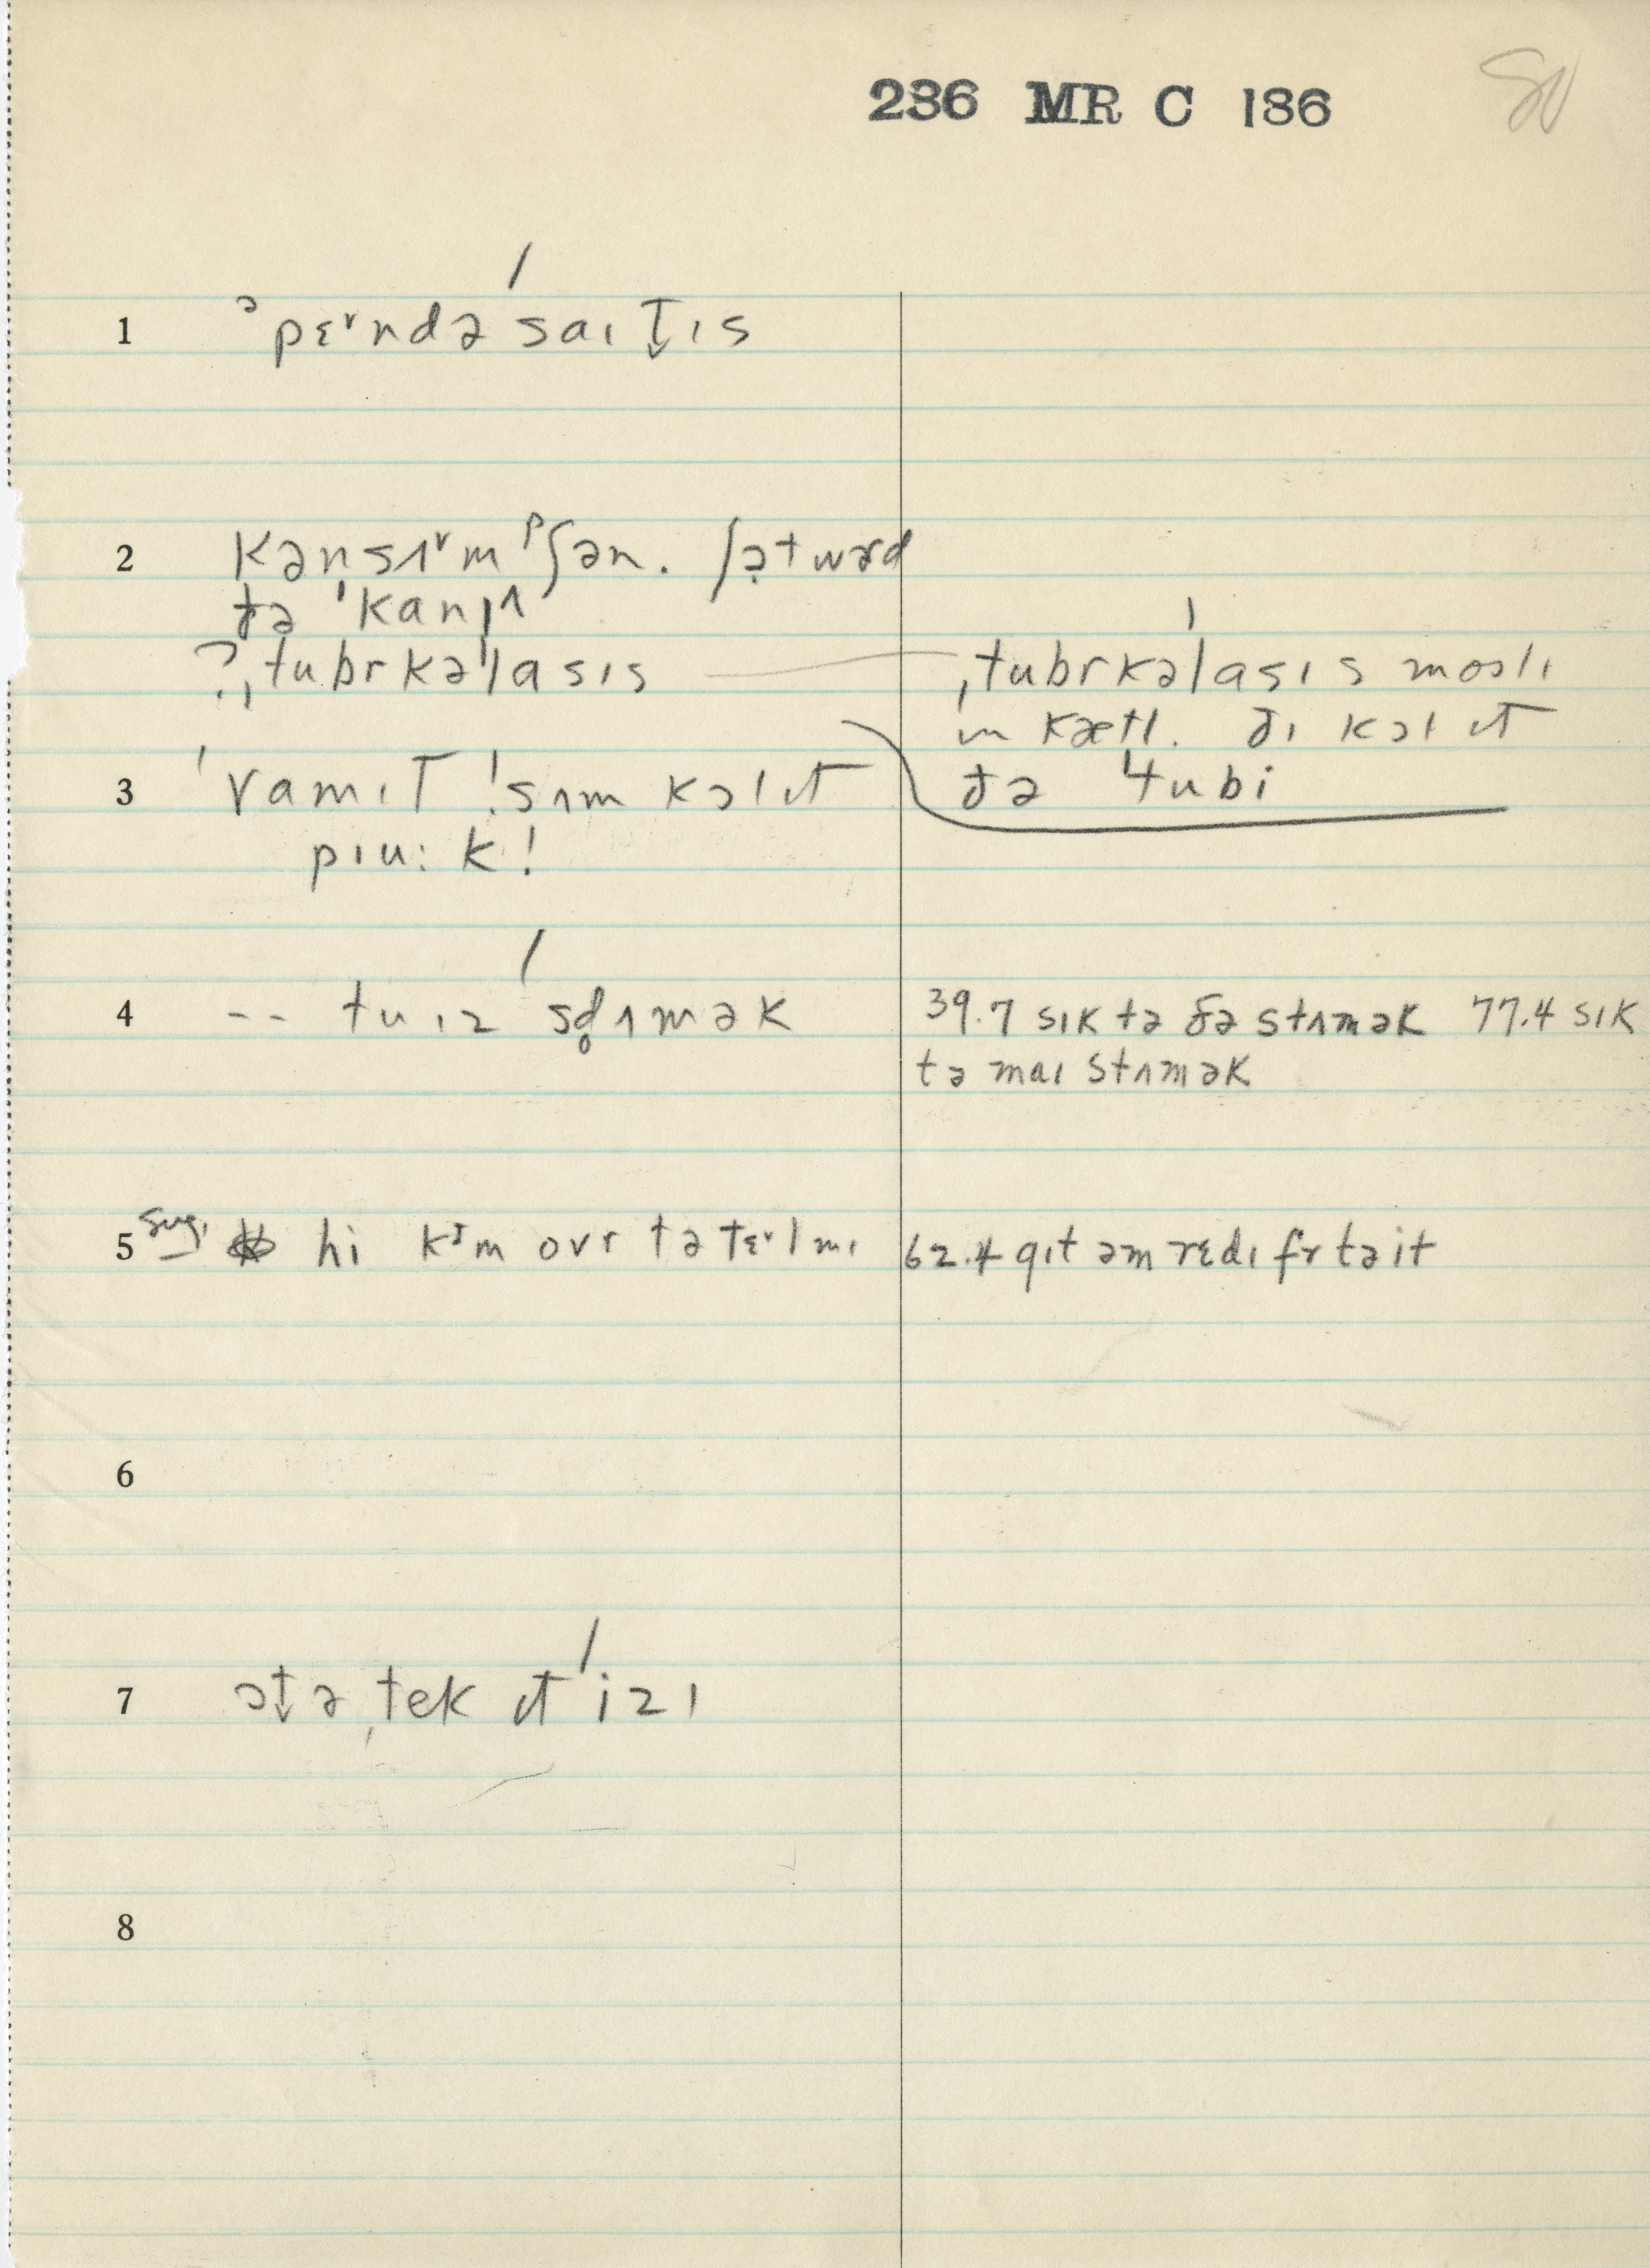 236 MR C 186
80
1 ᵊpɛᵛndə ˈsaɪt̬ɪs
2 kən̩sʌᵛmᵖʃən. ʃət wərd
ðə ˈkanʃʌ
?ˌtubrkəˈlasɪs
ˌtubrkəˈlasɪs mosli
ɪn kætl. ðɪ kɔl ɪt
ðə ˈtubi
3 ˈvamɪt ! sʌm kɔl ɪt
pɪu:k!
4 -- tu ɪz ˈsd̥ʌmək
39.7 sɪk tə ðə stʌmək 77.4 sɪk
tə maɪ stʌmək
5 sug. hi kᶦm ovr tə tɛᵛl mɪ
62.4 gɪt əm rɛdɪ fr tə it
6
7 ət̬ə ˌtek ɪt ˈizɪ
8